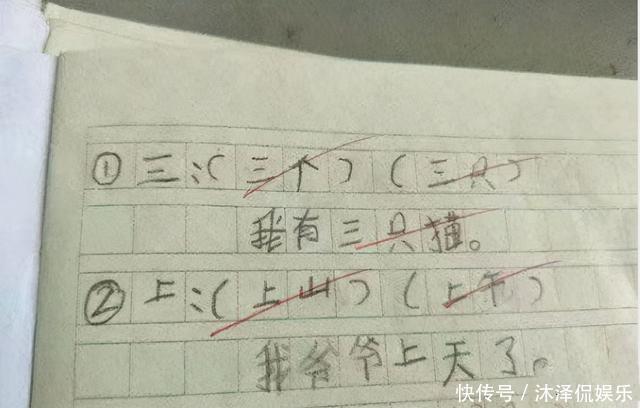 ①三:(三个)(三只)
我有三只猫。
②上:(上山)(上午)
我爷爷上天了。
快传号/沐泽侃娱乐